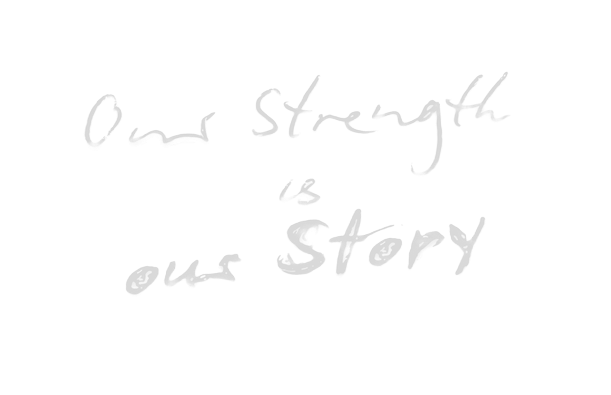 Our Strength
is
our Story